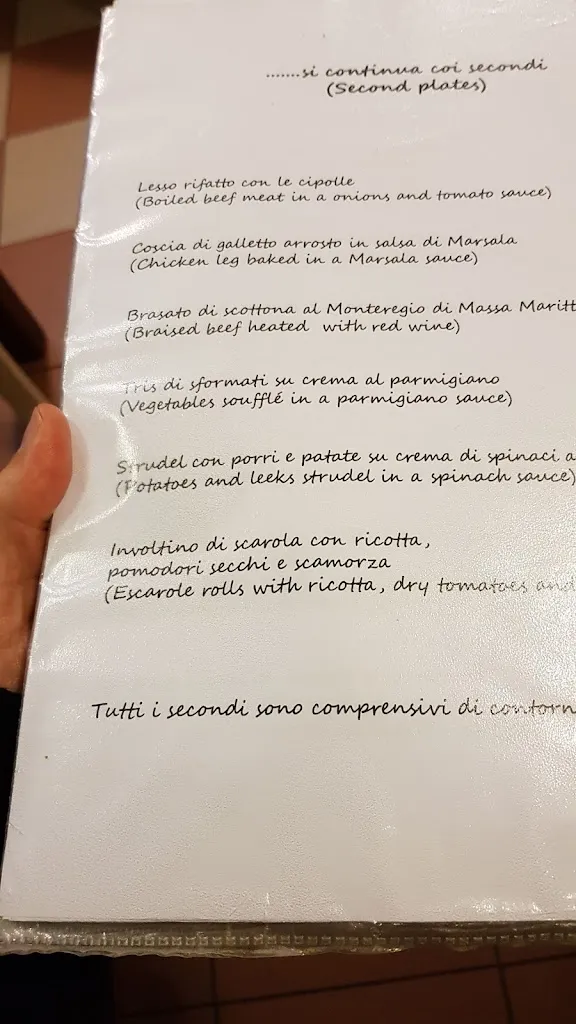 .......si continua coi secondi
(Second plates)
Lesso rifatto con le cipolle
(Boiled beef meat in a onions and tomato sauce)
Coscia di galletto arrosto in salsa di Marsala
(Chicken leg baked in a Marsala sauce)
Brasato di scottona al Monteregio di Massa Maritt
(Braised beef heated with red wine)
Tris di sformati su crema al parmigiano
(Vegetables soufflé in a parmigiano sauce)
Strudel con porri e patate su crema di spinaci a
(Potatoes and leeks strudel in a spinach sauce)
Involtino di scarola con ricotta,
pomodori secchi e scamorza
(Escarole rolls with ricotta, dry tomatoes and
Tutti i secondi sono comprensivi di contorn